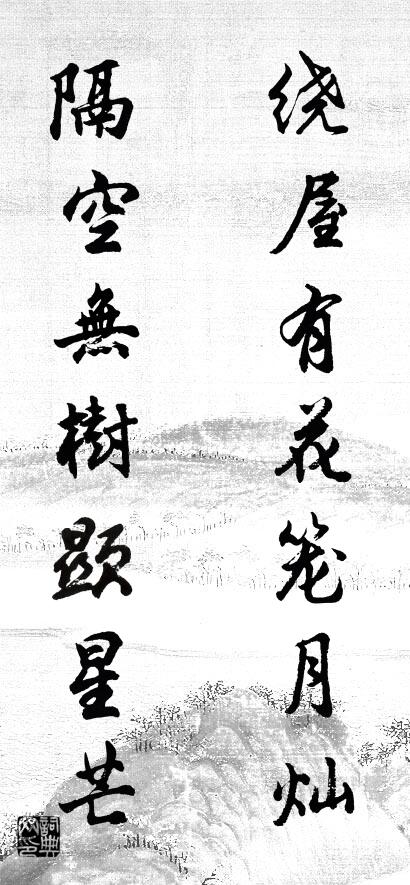 绕屋有花笼月灿
隔空無樹顯星芒